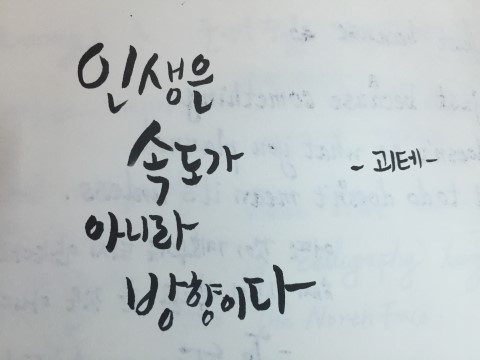 인생은
속도가
아니라
방향이다
- 괴테 -